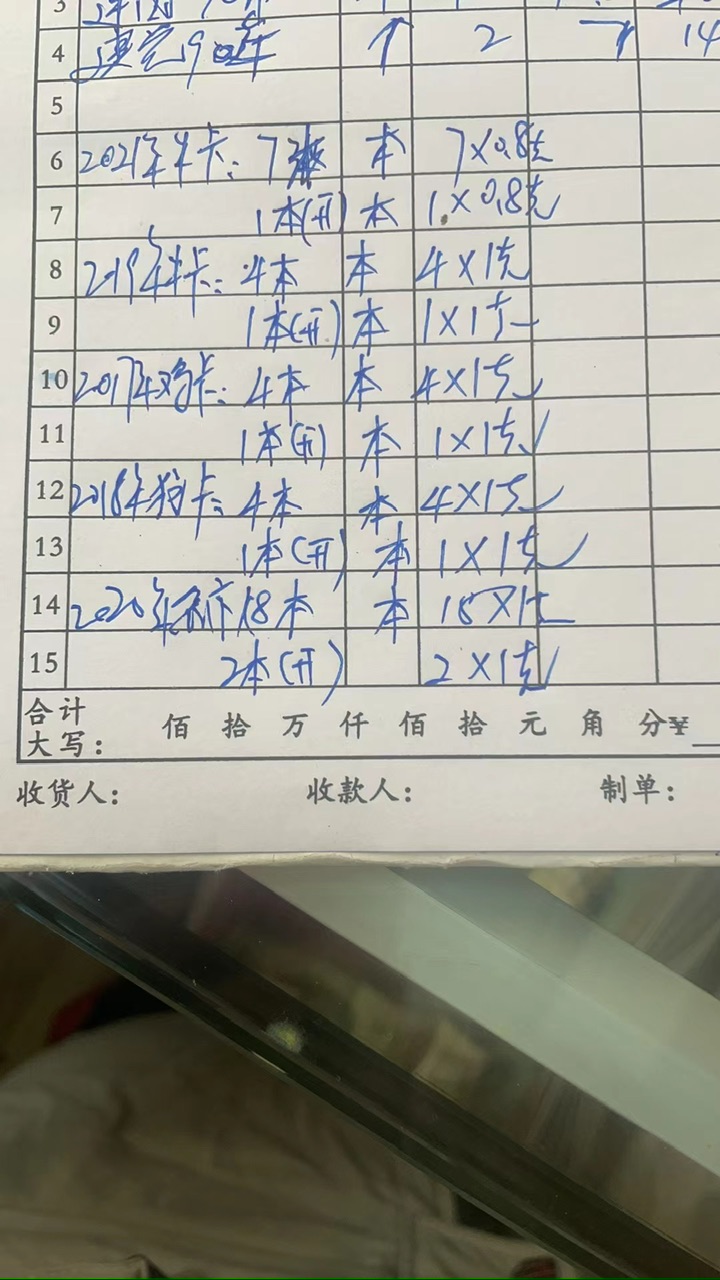 3
4 90年 个 2 7 14
5
6 2021年牛卡: 7本 本 7×0.8克
7 1本(开) 本 1×0.8克
8 2019年卡: 4本 本 4×1克
9 1本(开) 本 1×1克
10 2017年鸡卡: 4本 本 4×1克
11 1本(开) 本 1×1克
12 2018年狗卡: 4本 本 4×1克
13 1本(开) 本 1×1克
14 2020年 18本 本 18×1克
15 2本(开) 2×1克
合计
大写: 佰 拾 万 仟 佰 拾 元 角 分¥
收货人: 收款人: 制单: